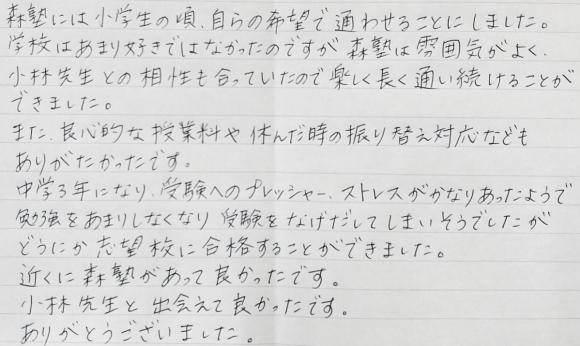 森塾には小学生の頃、自らの希望で通わせることにしました。
学校はあまり好きではなかったのですが森塾は雰囲気がよく、
小林先生との相性も合っていたので楽しく長く通い続けることが
できました。
また、良心的な授業料や休んだ時の振り替え対応なども
ありがたかったです。
中学3年になり、受験へのプレッシャー、ストレスがかなりあったようで
勉強をあまりしなくなり受験をなげだしてしまいそうでしたが
どうにか志望校に合格することができました。
近くに森塾があって良かったです。
小林先生と出会えて良かったです。
ありがとうございました。